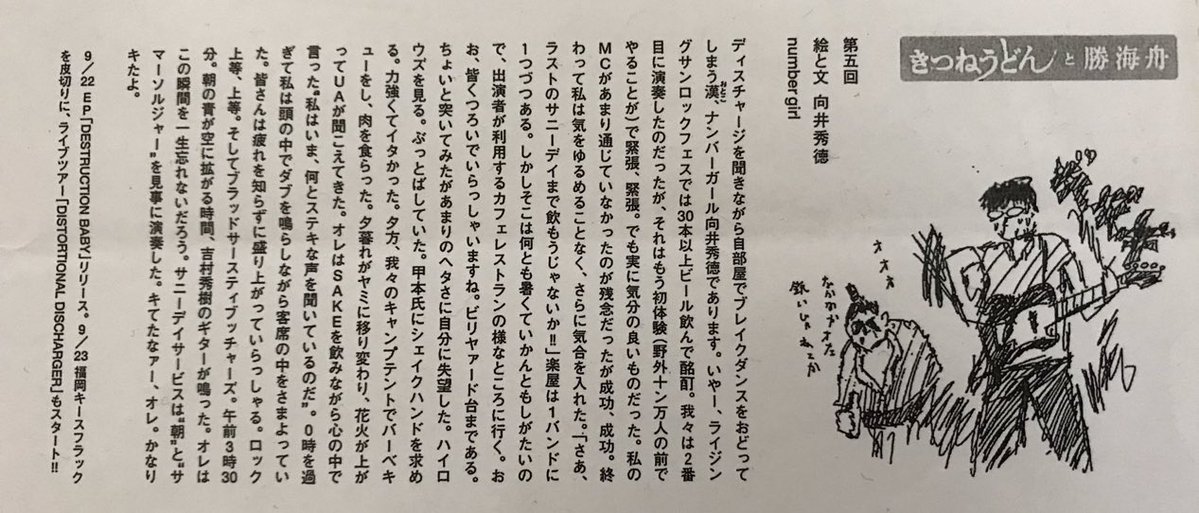 きつねうどんと勝海舟
第五回
絵と文 向井秀徳
number girl
ディスチャージを聞きながら自部屋でブレイクダンスをおどって
しまう漢、ナンバーガール向井秀徳であります。いやー、ライジン
グサンロックフェスでは30本以上ビール飲んで酩酊。我々は2番
目に演奏したのだったが、それはもう初体験(野外十ン万人の前で
やることが)で緊張、緊張。でも実に気分の良いものだった。私の
MCがあまり通じていなかったのが残念だったが成功、成功。終
わって私は気をゆるめることなく、さらに気合を入れた。「さあ、
ラストのサニーデイまで飲もうじゃないか!!」楽屋は1バンドに
1つづつある。しかしそこは何とも暑くていかんともしがたいの
で、出演者が利用するカフェレストランの様なところに行く。お
お、皆くつろいでいらっしゃいますね。ビリヤァード台まである。
ちょいと突いてみたがあまりのヘタさに自分に失望した。ハイロ
ウズを見る。ぶっとばしていた。甲本氏にシェイクハンドを求め
る。力強くてイタかった。夕方、我々のキャンプテントでバーベキ
ューをし、肉を食らった。夕暮れがヤミに移り変わり、花火が上が
ってUAが聞こえてきた。オレはSAKEを飲みながら心の中で
言った。“私はいま、何とステキな声を聞いているのだ”。0時を過
ぎて私は頭の中でダブを鳴らしながら客席の中をさまよってい
た。皆さんは疲れを知らずに盛り上がっていらっしゃる。ロック
上等、上等。そしてブラッドサースティブッチャーズ。午前3時30
分。朝の青が空に拡がる時間、吉村秀樹のギターが鳴った。オレは
この瞬間を一生忘れないだろう。サニーデイサービスは“朝”と“サ
マーソルジャー”を見事に演奏した。キてたなァー、オレ。かなり
キたよ。
9/22 EP「DESTRUCTION BABY」リリース。9/23 福岡キースフラック
を皮切りに、ライブツアー「DISTORTIONAL DISCHARGER」もスタート!!
オオオ
なかなかオタ
鋭いじゃねえか